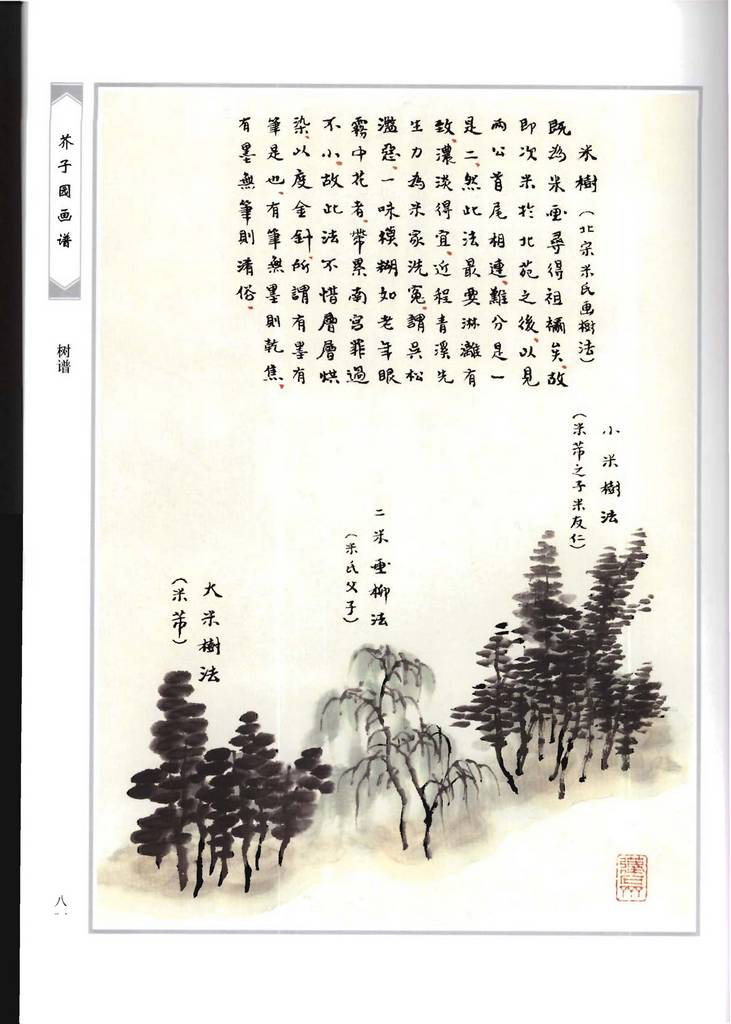 芥子园画谱
树谱
米樹（北宋米氏画樹法）
既為米畫尋得祖禰矣。故
即次米於北苑之後。以見
兩公首尾相連。難分是一
是二。然此法最要淋漓有
致。濃淡得宜。近程青溪先
生力為米家洗冤。謂吳松
濫惡。一味模糊如老年眼
霧中花者。帶累南宮罪過
不小。故此法不惜層層烘
染。以度金針。所謂有墨有
筆是也。有筆無墨則乾焦。
有墨無筆則清俗。
小米樹法
（米芾之子米友仁）
二米畫柳法
（米氏父子）
大米樹法
（米芾）